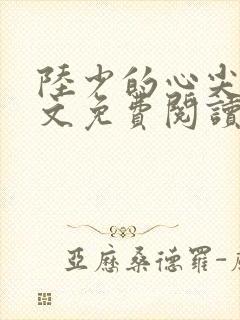 陸少的心尖
文免費閱讀
亞歷桑德羅-